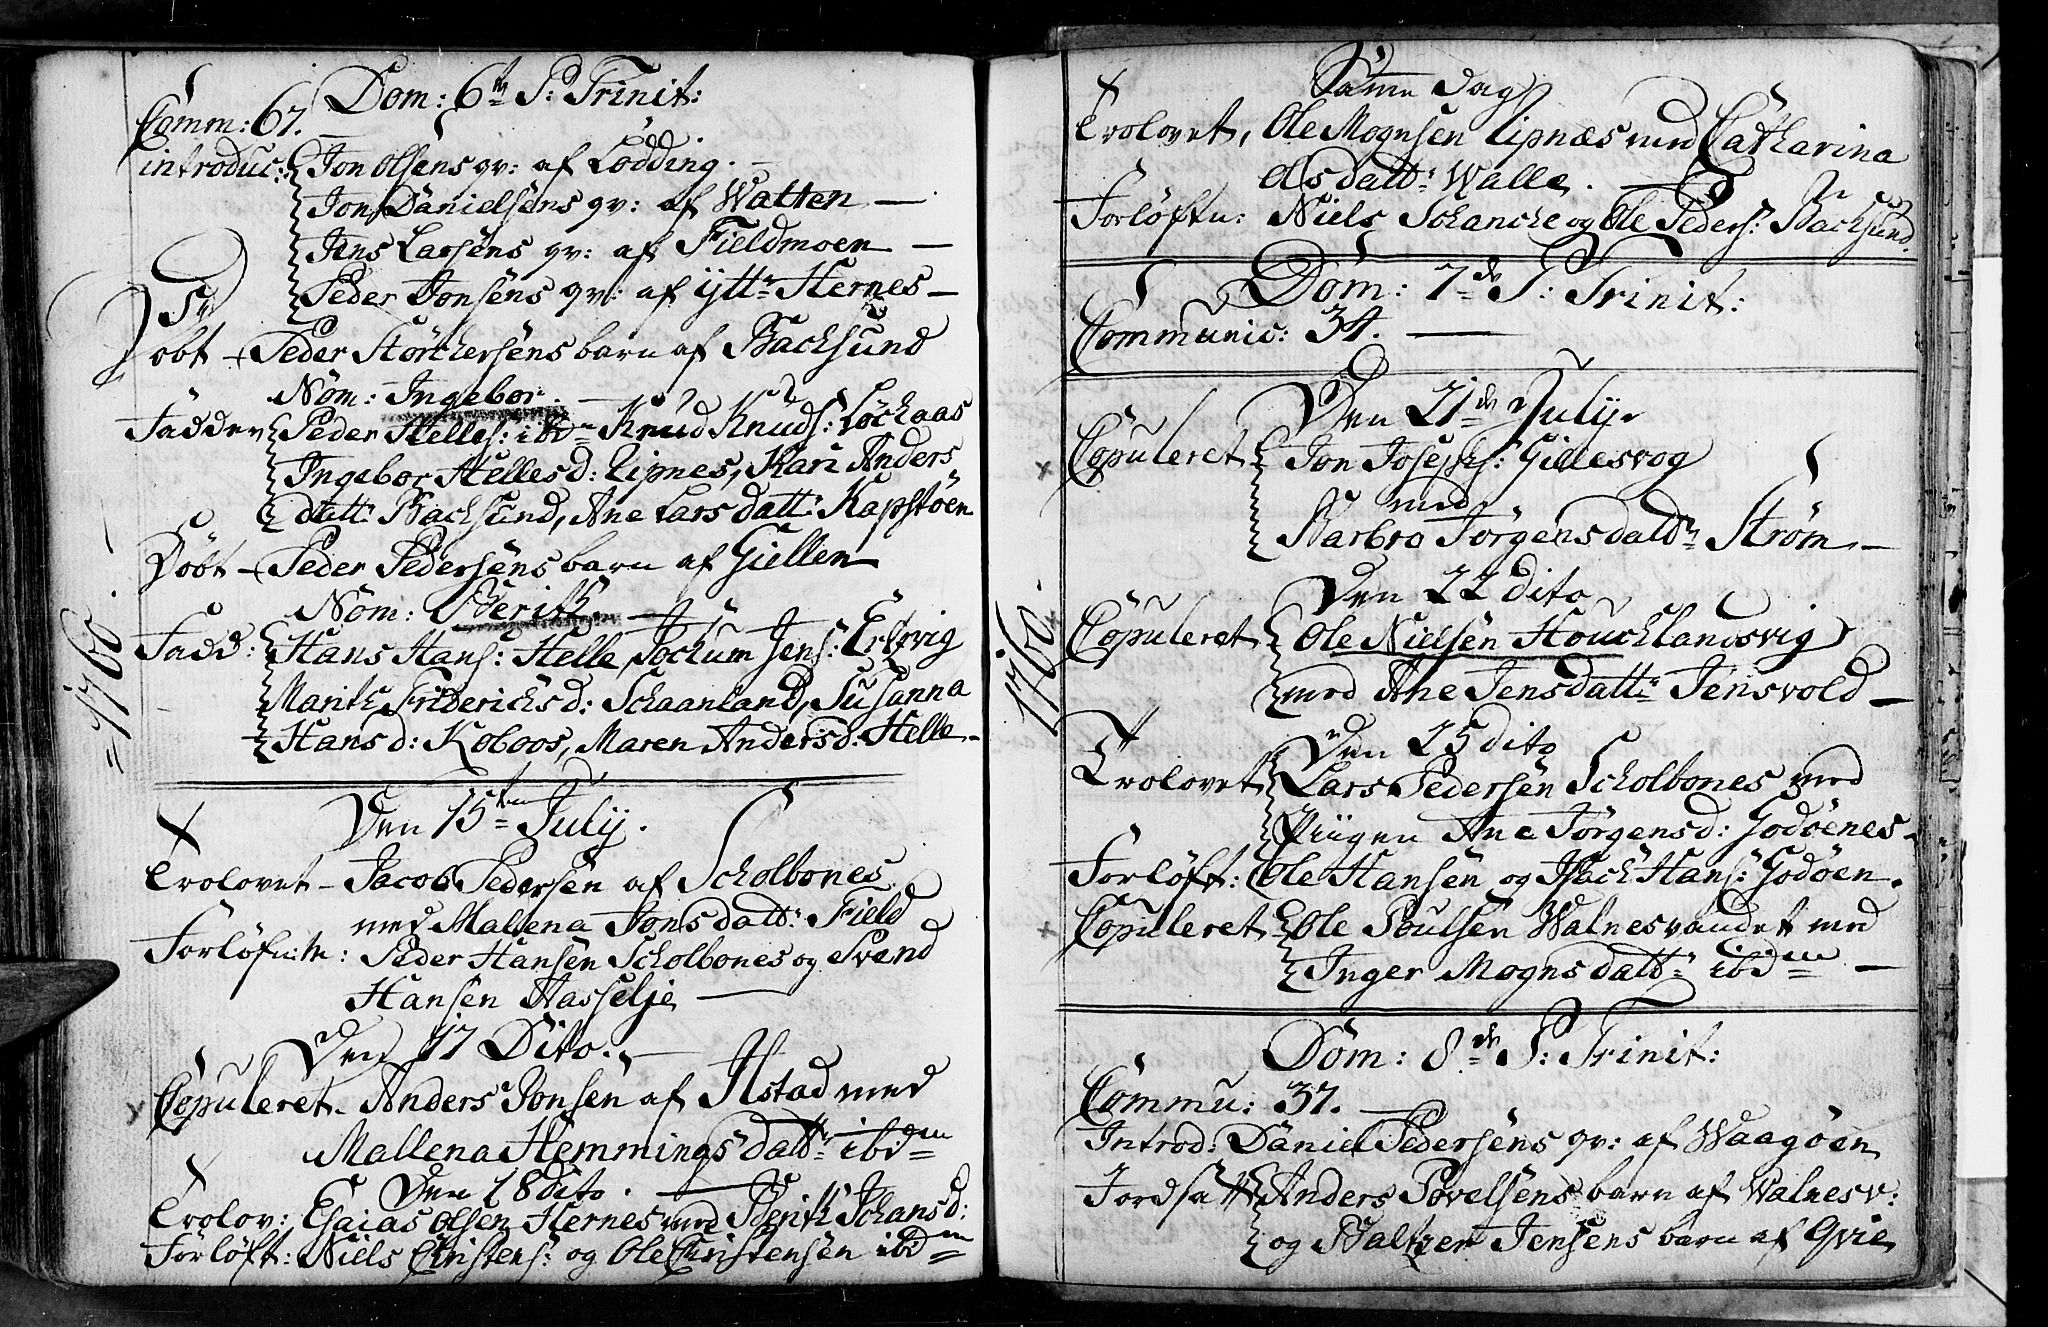 Dom: 6te P: Trinit:
Comm: 67.
introduc: Jon Olsens qv: af Lödding. —
Jon Danielsens qv: af Watten —
Jens Larsens qv: af Fieldmoen —
Peder Jonsens qv: af ytt: Hernes —
Döbt – Peder Störchersens barn af Bachsund
Nom: Ingebor. —
Faddere Peder Helles: ibdm Knud Knuds: Löchaas
Ingebor Hellesd: Lipnes, Kari Anders
datt: Bachsund, Ane Lars datt: Kapstöen
Döbt – Peder Pedersens barn af Giellen
Nom: Berith. —
Fadd: Hans Hans: Helle, Jochum Jens: Erlsvig
Marith Friderichsd: Schaanland, Susanna
Hansd: Koboos, Maren Andersd: Helle –
=1760. —
Den 15ten July.
Trolovet – Jacob Pedersen af Scholbones
med Mallena Jonsdatt: Field
Forlöfin: Peder Hansen Scholbones og Svend
Hansen Hasselje —
Den 17 Dito. —
Copuleret – Anders Jonsen af Ilstad med
Mallena Hemmings datt: ibdm
Den 18 dito. —
Trolov: Esaias Olsen Hernes med Berith Johansd:
Forlöft: Niels Christens: og Ole Christensen ibdm
Samme dag
Trolovet, Ole Mognsen Lipnæs med Catharina
Olsdatt: Walle. —
Forlöftn: Niels Schancke og Ole Peders: Bachsund.
Dom: 7de P: Trinit:
Communic: 34. —
Den 21de July.
Copuleret Jon Josephs: Gillesvog
med
Barbro Jörgensdatt: Ström —
Den 22 dito
Copuleret Ole Nielsen Houcklandsvig
med Ane Jensdatt: Jensvold —
1760. —
Den 25 dito
Trolovet Lars Pedersen Scholbones med
Piigen Ane Jörgensd: Godöenes –
Forlöft: Ole Hansen og Isach Hans: Godöen.
Copuleret Ole Poulsen Walnesvandet med
Inger Mognsdatt: ibdm —
Dom: 8de P: Trinit:
Commu: 37. —
Introd: Daniel Pedersens qv: af Waagöen
Jordsatt Anders Povelsens barn af Walnesv:
og Baltzer Jensens barn af Qvie